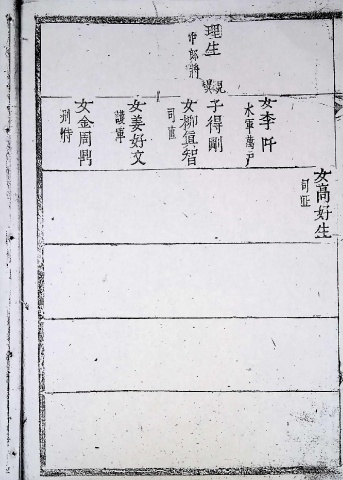 理生
中郎將
女李阡
水軍萬戶
子得剛
女柳眞智
司直
女姜好文
護軍
女金周鼎
別將
女高好生
司正